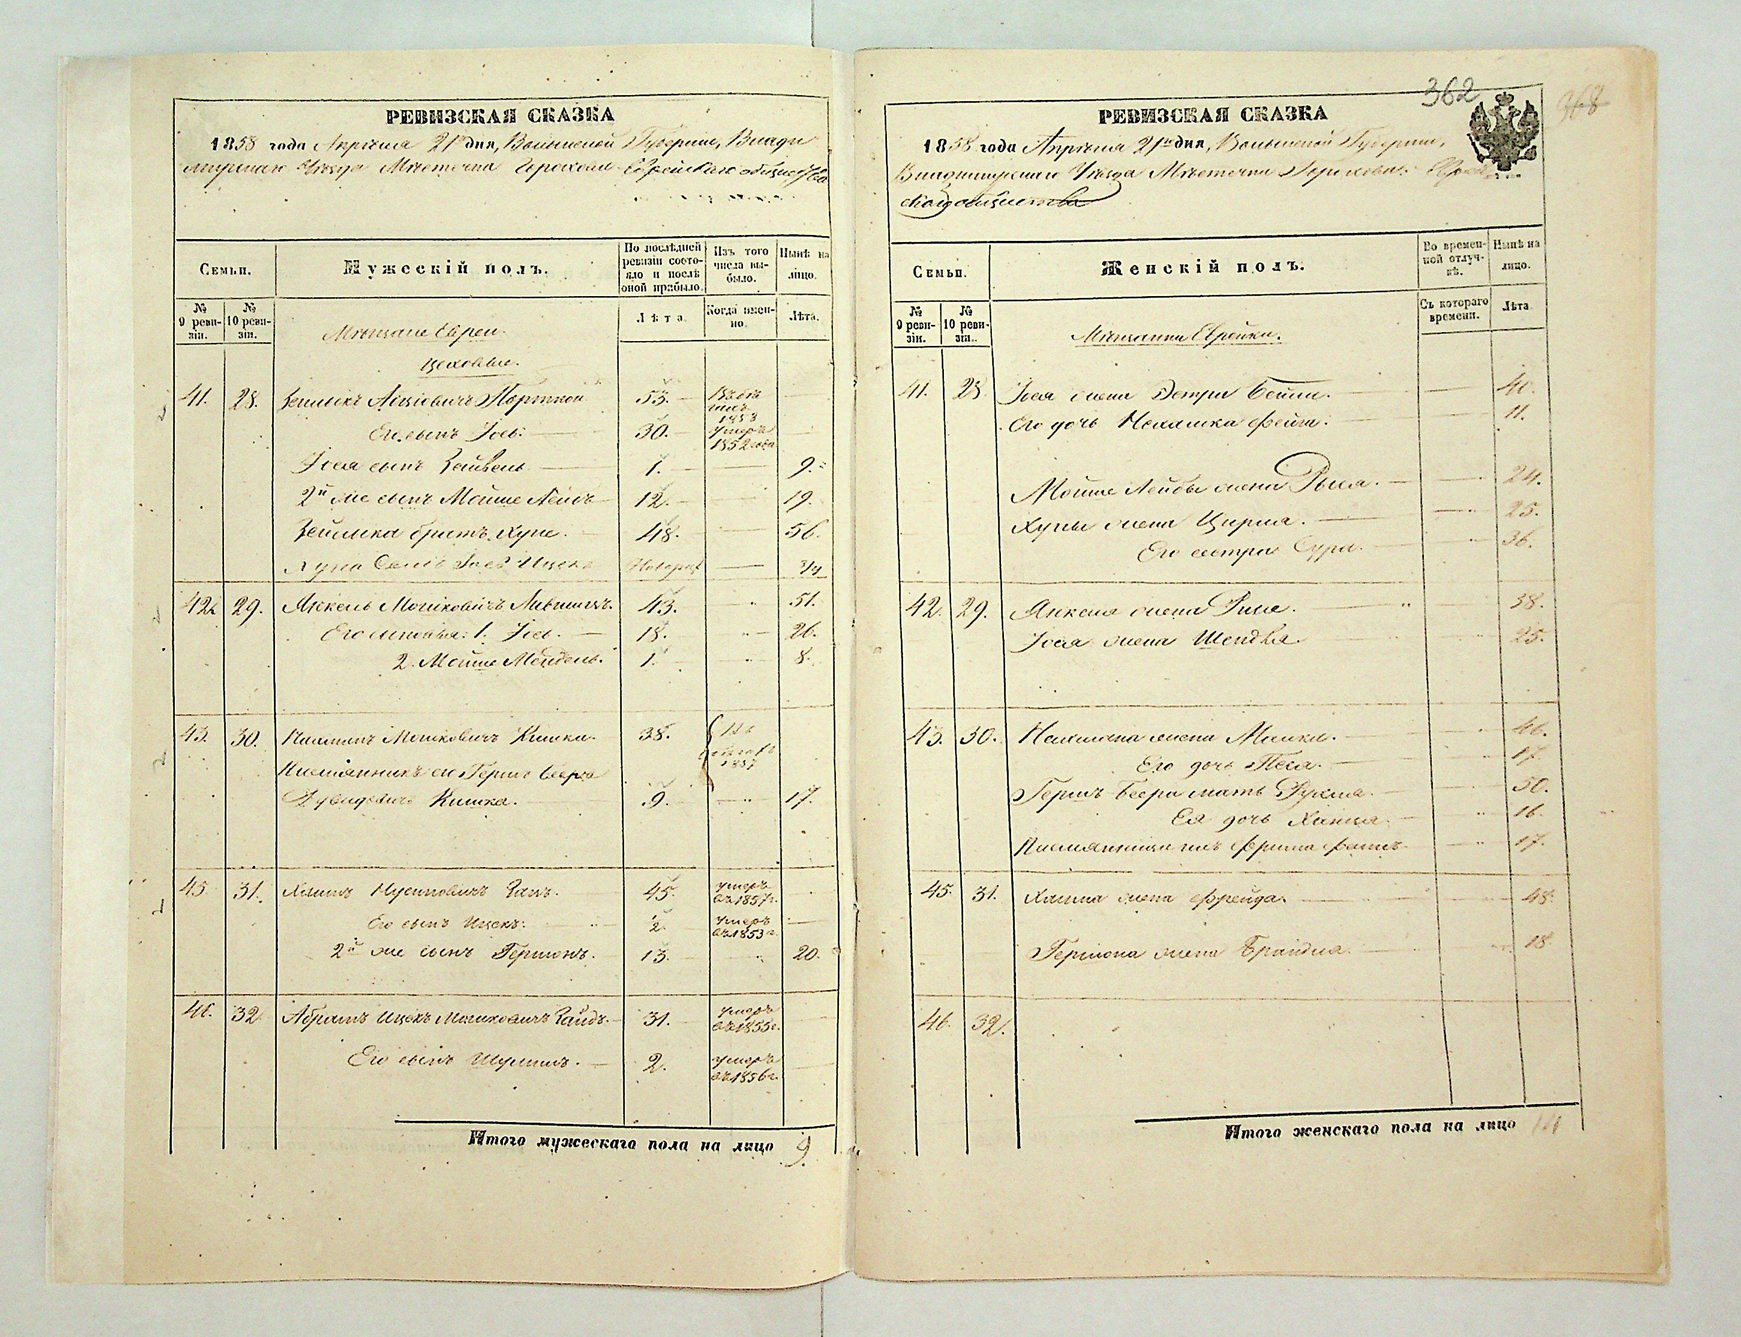 РЕВИЗСКАЯ СКАЗКА
1858 года Апреля 21го дня, Волынской Губернии, Влади
мирского Уезда Местечка Горохова Еврейского общества
Семьи.
Мужескій полъ.
По послѣдней ревизіи состояло и послѣ оной прибыло.
Изъ того числа выбыло.
Нынѣ на лицо.
№ 9 ревизіи.
№ 10 ревизіи.
Лѣта.
Когда именно.
Лѣта.
Мещане Евреи
цеховые.
41. 28. Портной 53. 1853
Его сынъ Іось. 30. умеръ 1852 года
Іося сынъ Зейвель 1. 9.
2й же сынъ Мойше Лейбъ 12. 19.
Зейлика братъ Хуне. 48. 56.
42 29. Янкель Мошковичъ Лившицъ. 43. 51.
Его сыновья: 1. Іос. 18. 26.
2. Мойше Мендель. 1. 8.
43. 30. Нахманъ Мошковичъ Кишка. 38. 1857
Племянникъ его Герш Беер
Дувидовичъ Кишка. 9. 17.
45 31. Хаимъ Нусиновичъ 45. умеръ въ 1857 г.
Его сынъ Ицекъ. 2. умеръ въ 1853 г.
2й же сынъ Гершонъ. 13. 20.
46. 32 Абрамъ Ицекъ Мошковичъ Зайдъ. 31. умеръ въ 1855 г.
Его сынъ Шулимъ. 2. умеръ въ 1856 г.
Итого мужескаго пола на лицо 9.
362
368
РЕВИЗСКАЯ СКАЗКА
1858 года Апреля 21го дня, Волынской Губернии,
Владимирского Уезда Местечка Горохова Еврей
ского общества
Семьи.
Женскій полъ.
Во временной отлучкѣ.
Нынѣ на лицо.
№ 9 ревизіи.
№ 10 ревизіи.
Съ котораго времени.
Лѣта.
Мещанки Еврейки.
41. 28 Іося жена Бейли. 40.
Его дочь Нехамка Фейга. 11.
Мойше Лейбы жена Рыся. 24.
Хуны жена Цирля. 25.
Его сестра Сура. 36.
42. 29. Янкеля жена 38.
Іося жена Шендля 25.
43. 30. Нахмана жена Малка. 46.
Его дочь Песя. 17.
Герш Беера мать Рухля. 50.
Ея дочь Ханця. 16.
Племянница 17.
45. 31. Хаима жена Фрейда. 48.
Гершона жена Брандля. 18.
46. 32.
Итого женскаго пола на лицо 14